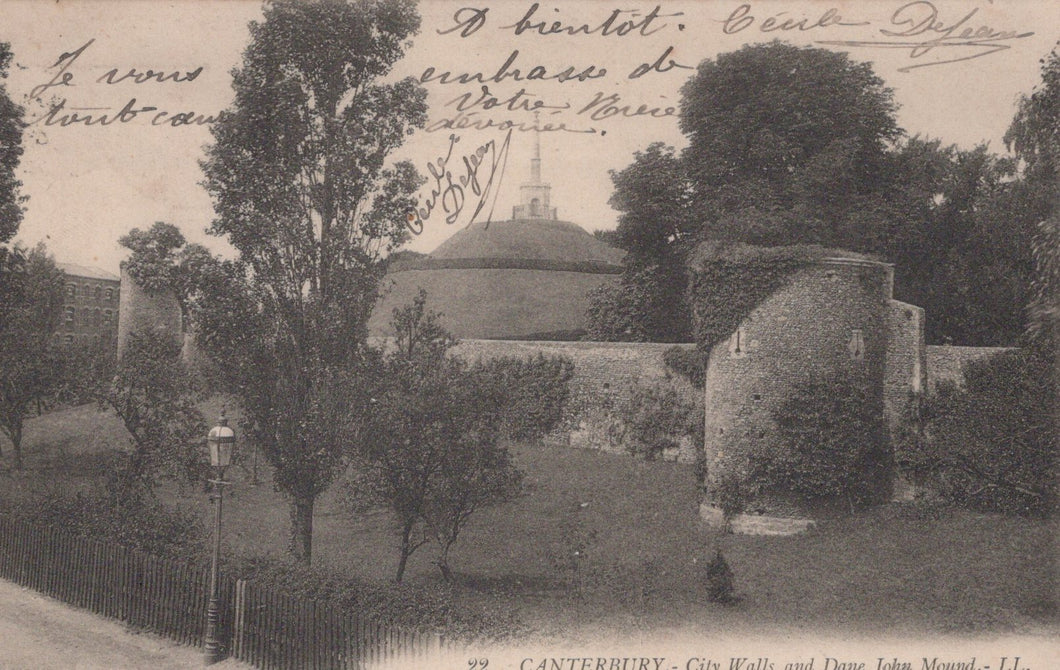 A bientôt. Cécile Dejean
Je vous embrasse de
tout cœur Votre Nièce
dévouée.
Cécile Dejean
22 CANTERBURY - City Walls and Dane John Mound. - LL.